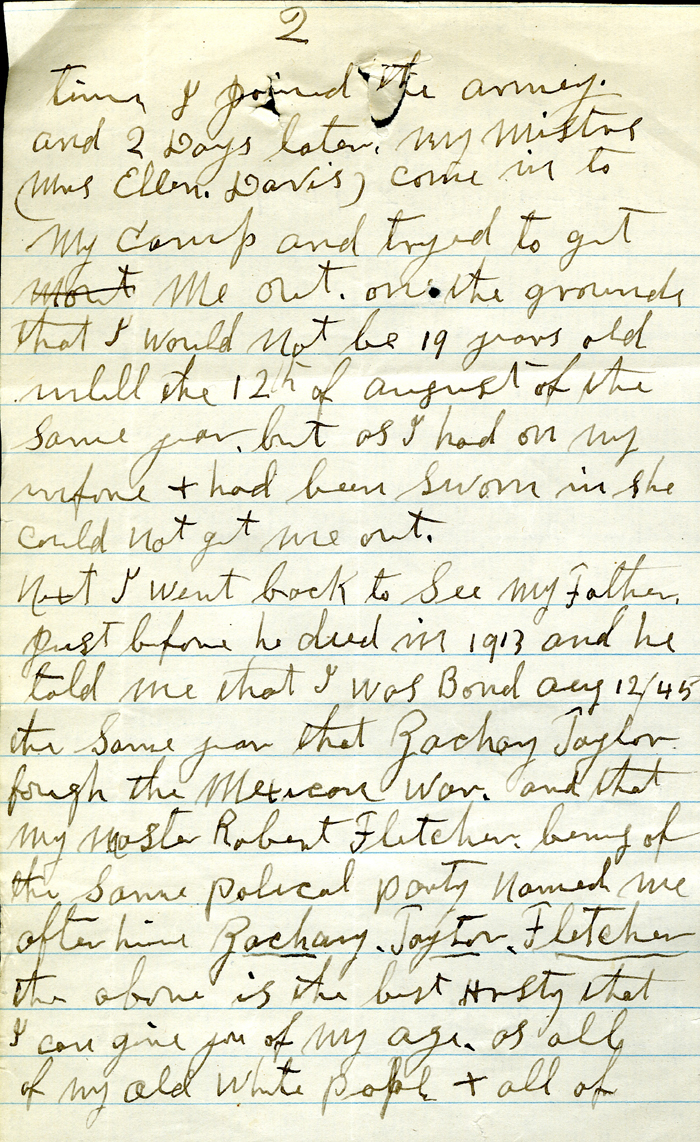 2
time I joined the army.
and 2 Days later. My Mistrs
(Mrs Ellen. Davis) come in to
My Camp and tryed to get
Me out. on the grounds
that I would Not be 19 years old
untill the 12th of august of the
Same year. but as I had on my
unifone + had been Sworn in she
could Not get me out.
Next I Went back to See My Father,
Just before he died in 1913 and he
told me that I was Bond aug 12/45
the Same year that Zachay Taylor
fough the Mexican War. and that
My Master Robert Fletcher. being of
the Same polical party Named me
after him Zachary. Taylor. Fletcher
the above is the best Hrsty that
I can give you of My age. as all
of my old White pople + all of